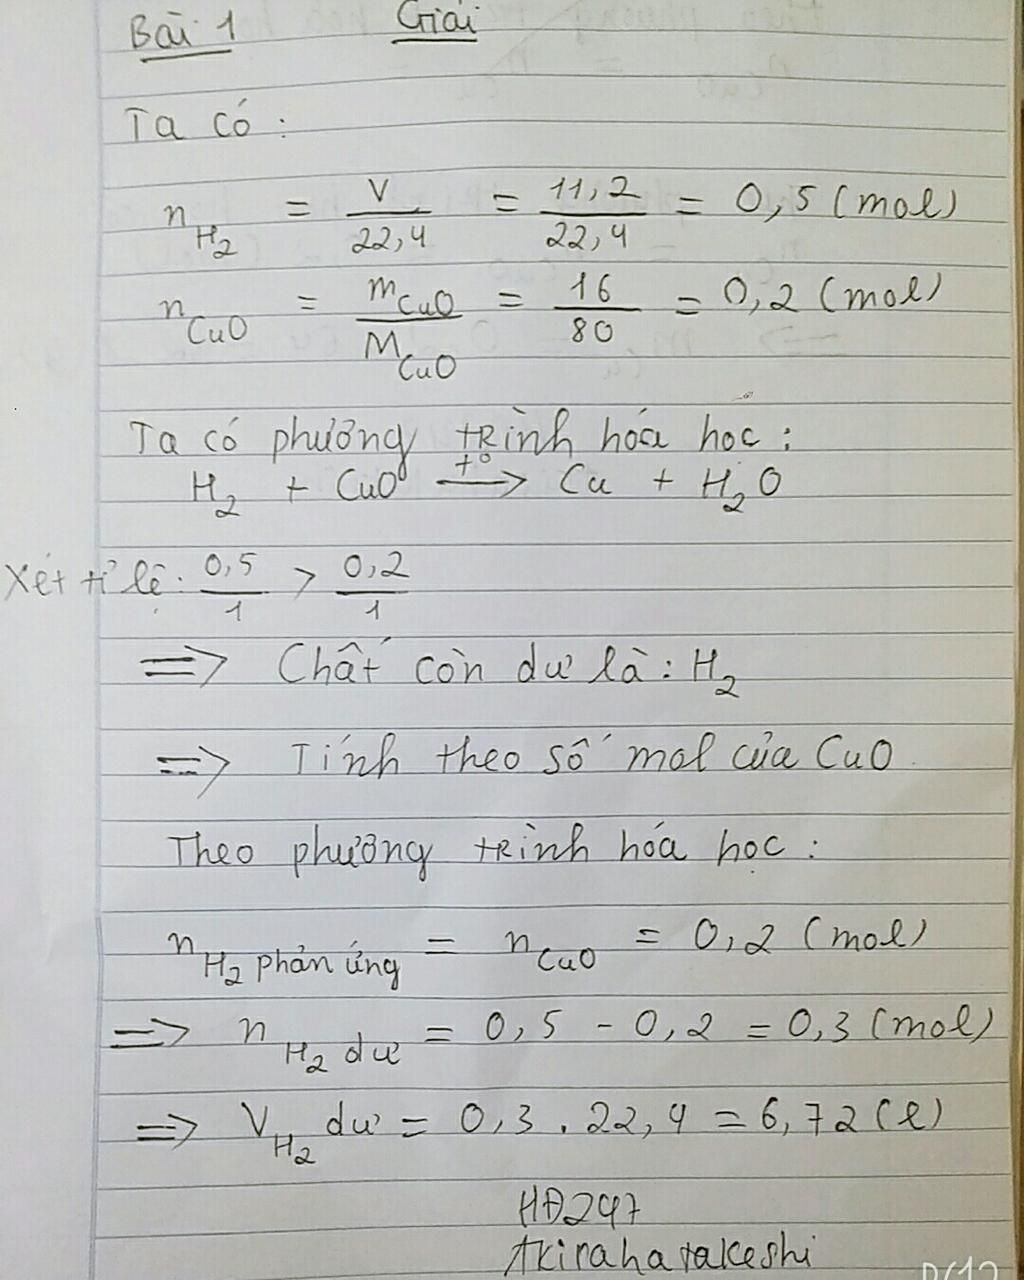 Bài 1 Giải
Ta có :
n_H2 = V/22,4 = 11,2/22,4 = 0,5 (mol)
n_CuO = m_CuO/M_CuO = 16/80 = 0,2 (mol)
Ta có phương trình hóa học :
H2 + CuO t°→ Cu + H2O
Xét tỉ lệ : 0,5/1 > 0,2/1
=> Chất còn dư là : H2
=> Tính theo số mol của CuO
Theo phương trình hóa học :
n_H2 phản ứng = n_CuO = 0,2 (mol)
=> n_H2 dư = 0,5 - 0,2 = 0,3 (mol)
=> V_H2 dư = 0,3 . 22,4 = 6,72 (l)
HĐ247
Akirahatakeshi